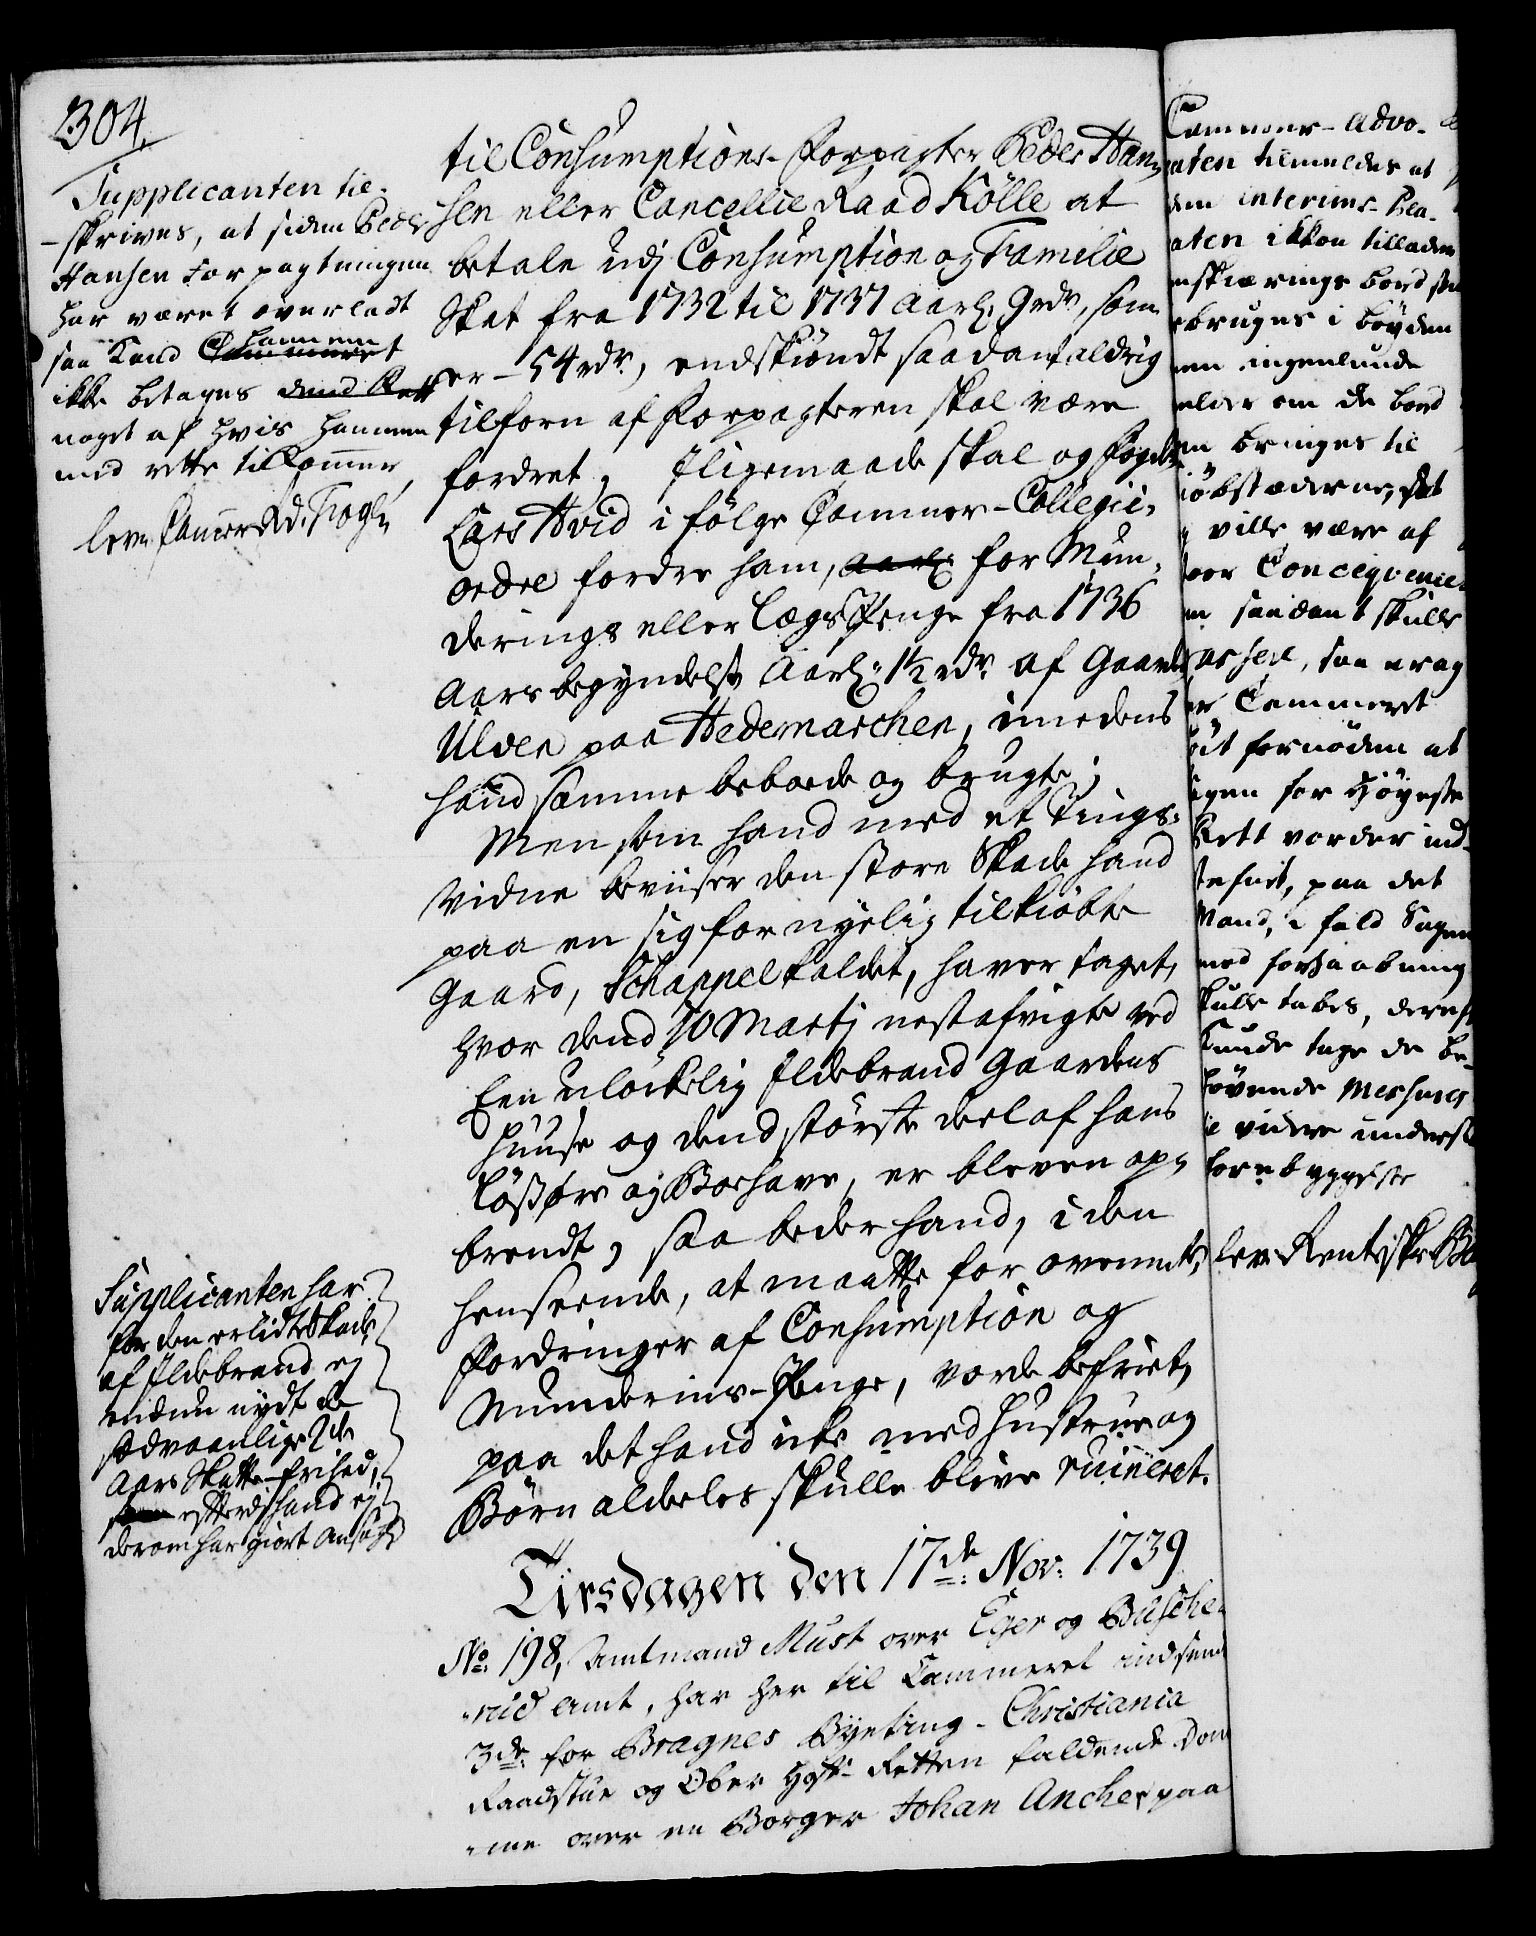 304.
Supplicanten til-
-skrives, at siden Peder
Hansen Forpagtningen
har været overladt
saa Kand Cammeret hannem
ikke betages dend Rett
noget af hvis hannem
med rette tilkommer,
lev. Camer Rd.
til Consumptions-Forpagter Peder Han-
sen eller Cancellie Raad Kölle at
betale udj Consumption og Familie
Skat fra 1732 til 1737 Aarl. 9 rdr, som
er - 54 rdr, endskiöndt saadant aldrig
tilforn af Forpagteren skal være
fordret, Iligemaade skal og Fogden
Lars Hvid i fölge Cammer-Collegii-
ordre fordre ham, aarl. for Mun-
derings eller Lægs Penge fra 1736
Aars begyndelse Aarl. 1½ rdr af Gaarden
Ulven paa Hedemarchen, imedens
hand samme beboede og brugte;
Men som hand med et Tings-
vidne beviiser den store Skade hand
paa en sig for nyelig tilkiöbte
Gaard, Schappel kaldet, haver taget,
hvor dend 10 Martj nestafvigte ved
Een ulöckelig Ildebrand Gaardens
Huuse og dend störste deel af hans
Lösöre og Boehave, er bleven op-
brendt, saa beder hand, i den
henseende, at maatte for ovenmelte
Fordringer af Consumption og
Munderins-Penge, vorde befriet,
paa det hand icke med Hustrue og
Börn aldeeles skulle blive ruineret.
Supplicanten har
for den erlidte Skade
af Ildebrand ej
endnu nydt de
sædvaanlige 2de
Aars Skatte-frihed,
som efterdj hand ej
derom har giort Ansögn
Tirsdagen den 17de Nov: 1739
No. 198, Amtmand Must over Eger og Busche-
-rud Amt, har her til Cammeret indsendt
3de for Bragnes Byeting - Christiania
Raadstue og Ober Hof-Retten faldende Dom-
-me over en Borger Johan Ancher paa
Cammer-Advo-
aten tilmeldes at
den interims-Pla-
aten ikkon tillader
nskiærings bord som
rbruges i böyden
men ingenlunde
elder om de bord
en bringes til
iöbstæderne, det
ville være af
oor Conceqvence
m saadant skulle
assere, saa erag
er Cammeret
öit fornöden at
igen for Höyeste
Rett vorder ind-
tefnt, paa det
Mand, i fald Sagen
mod forhaabning
skulle tabes, dernest
kunde tage de be-
hövende Mesures
e videre underslæ
forebyggelse
lev. Rentskr. B